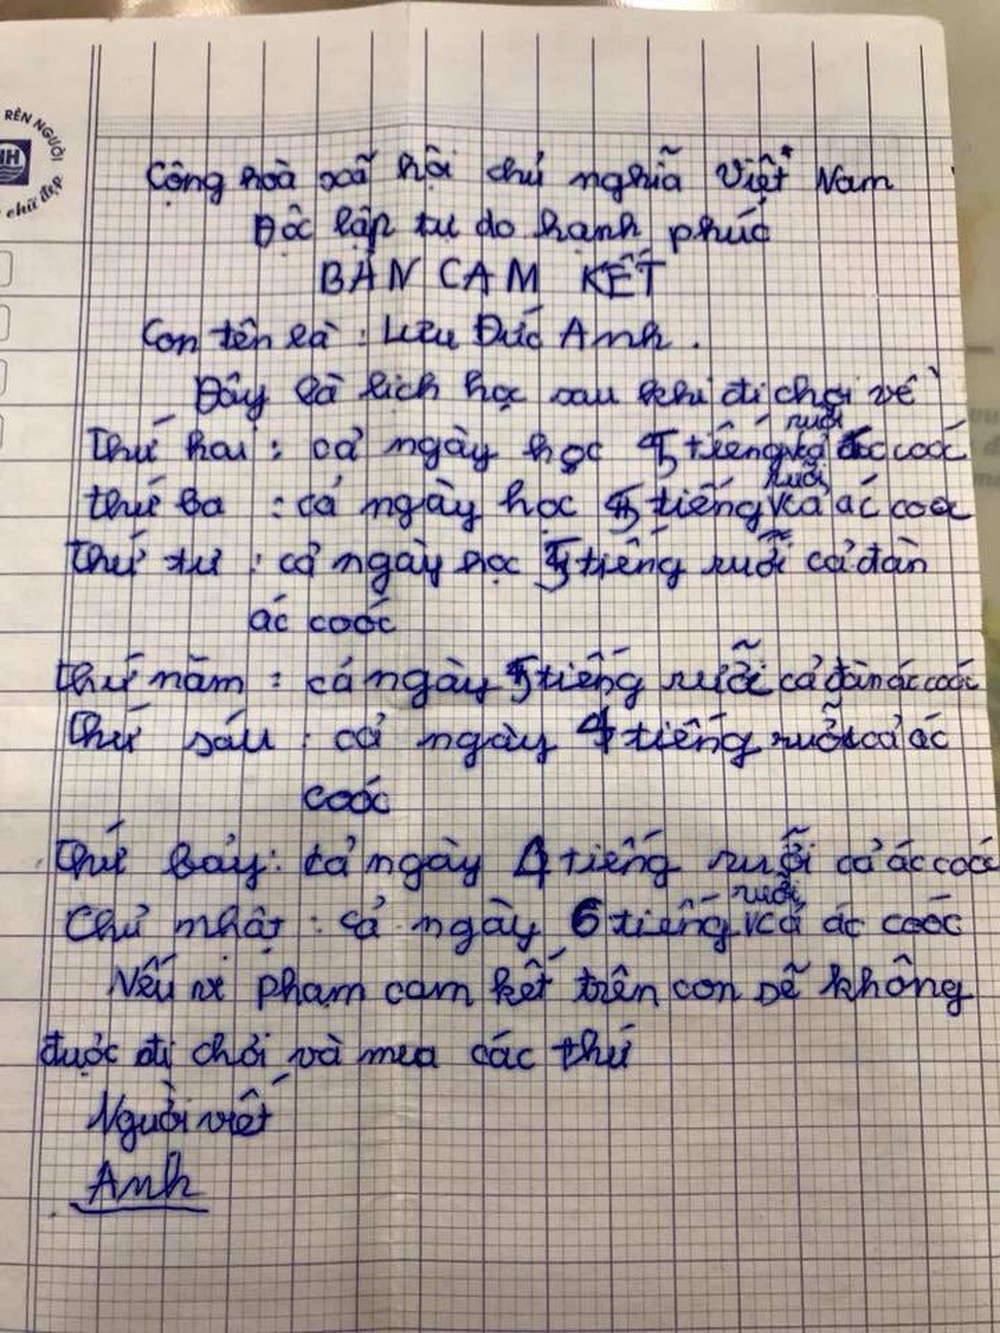 RÈN NGƯỜI
chữ đẹp
Cộng hoà xã hội chủ nghĩa Việt Nam
Độc lập tự do hạnh phúc
BẢN CAM KẾT
Con tên là : Lưu Đức Anh .
Đây là lich học sau khi đi chơi về
Thứ hai : cả ngày học 5 tiếng rưỡi cả ác coóc
thứ ba : cả ngày học 5 tiếng rưỡi cả ác coóc
Thứ tư : cả ngày học 5 tiếng rưỡi cả đàn
ác coóc
thứ năm : cả ngày 5 tiếng rưỡi cả đàn ác coóc
Thứ sáu : cả ngày 4 tiếng rưỡi cả ác
coóc
Thứ bảy : cả ngày 4 tiếng rưỡi cả ác coóc
Chủ nhật : cả ngày 6 tiếng rưỡi cả ác coóc
Nếu vi phạm cam kết trên con sẽ không
được đi chơi và mua các thứ
Người viết
Anh